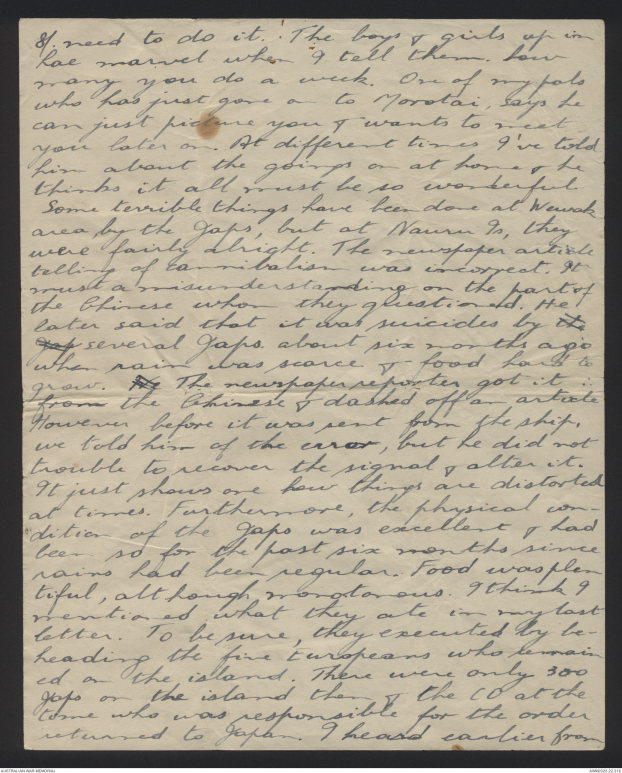 8/. need to do it. The boys & girls up in
Lae marvel when I tell them how
many you do a week. One of my pals
who has just gone on to Morotai, says he
can just picture you & wants to meet
you later on. At different times I've told
him about the goings on at home & he
thinks it all must be so wonderful
Some terrible things have been done at Wewak
area by the Japs, but at Nauru Is, they
were fairly alright. The newspaper article
telling of cannibalism was incorrect. It
must a misunderstanding on the part of
the Chinese whom they questioned. He
later said that it was suicides by the
Jap several Japs. about six months ago
when rain was scarce & food hard to
grow. The The newspaper reporter got it
from the Chinese & dashed off an article
However before it was sent from the ship,
we told him of the error, but he did not
trouble to recover the signal & alter it.
It just shows one how things are distorted
at times. Furthermore, the physical con-
dition of the Japs was excellent & had
been so for the past six months since
rains had been regular. Food was plen
tiful, although monotonous. I think I
mentioned what they ate in my last
letter. To be sure, they executed by be-
heading the five Europeans who remain
ed on the island. There were only 300
Japs on the island then & the CO at the
time who was responsible for the order
returned to Japan. I heard earlier from
AUSTRALIAN WAR MEMORIAL